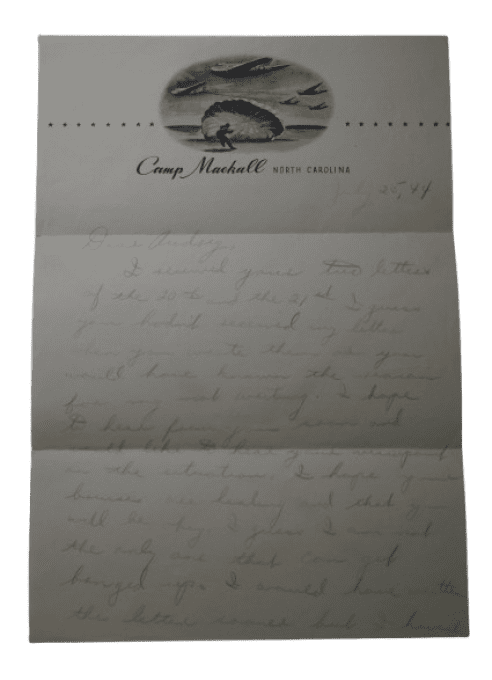 Camp Mackall NORTH CAROLINA
July 25, 44
Dear Audrey,
I received your two letters
of the 20th and the 21st. I guess
you hadn't received my letter
when you wrote them or you
would have known the reason
for my not writing. I hope
to hear from you soon and
would like to hear your viewpoint
on the situation. I hope your
bruises are healing and that you
will be okay. I guess I am not
the only one that can get
banged up. I would have written
the letter sooner but I haven't